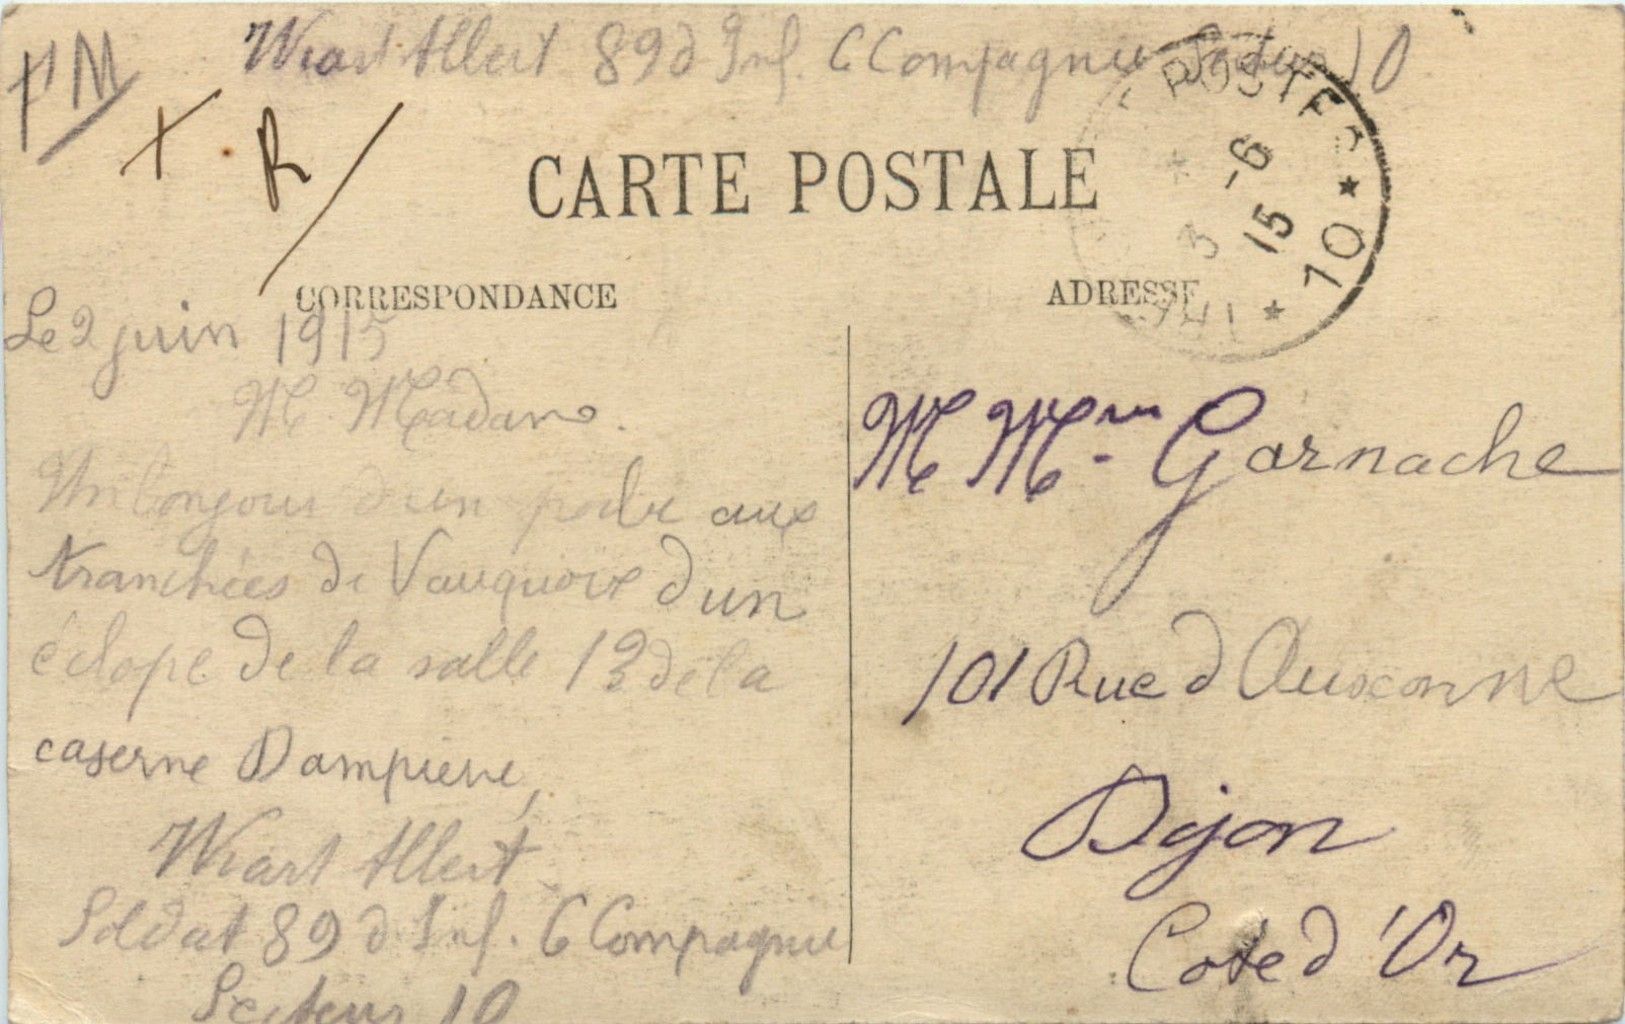 FM
Wiart Albert 89 d Inf. 6 Compagnie Secteur 10
+ R/
CARTE POSTALE
POSTES
3 -6
15
* 10 *
CORRESPONDANCE
ADRESSE
Le 2 juin 1915
M. Madame.
Un bonjour d'un poilu aux
tranchées de Vauquois d'un
éclopé de la salle 13 de la
caserne Dampierre,
Wiart Albert
Soldat 89 d. Inf. 6 Compagnie
Secteur 10
M Mme Garnache
101 Rue d Auxonne
Dijon
Cote d'Or